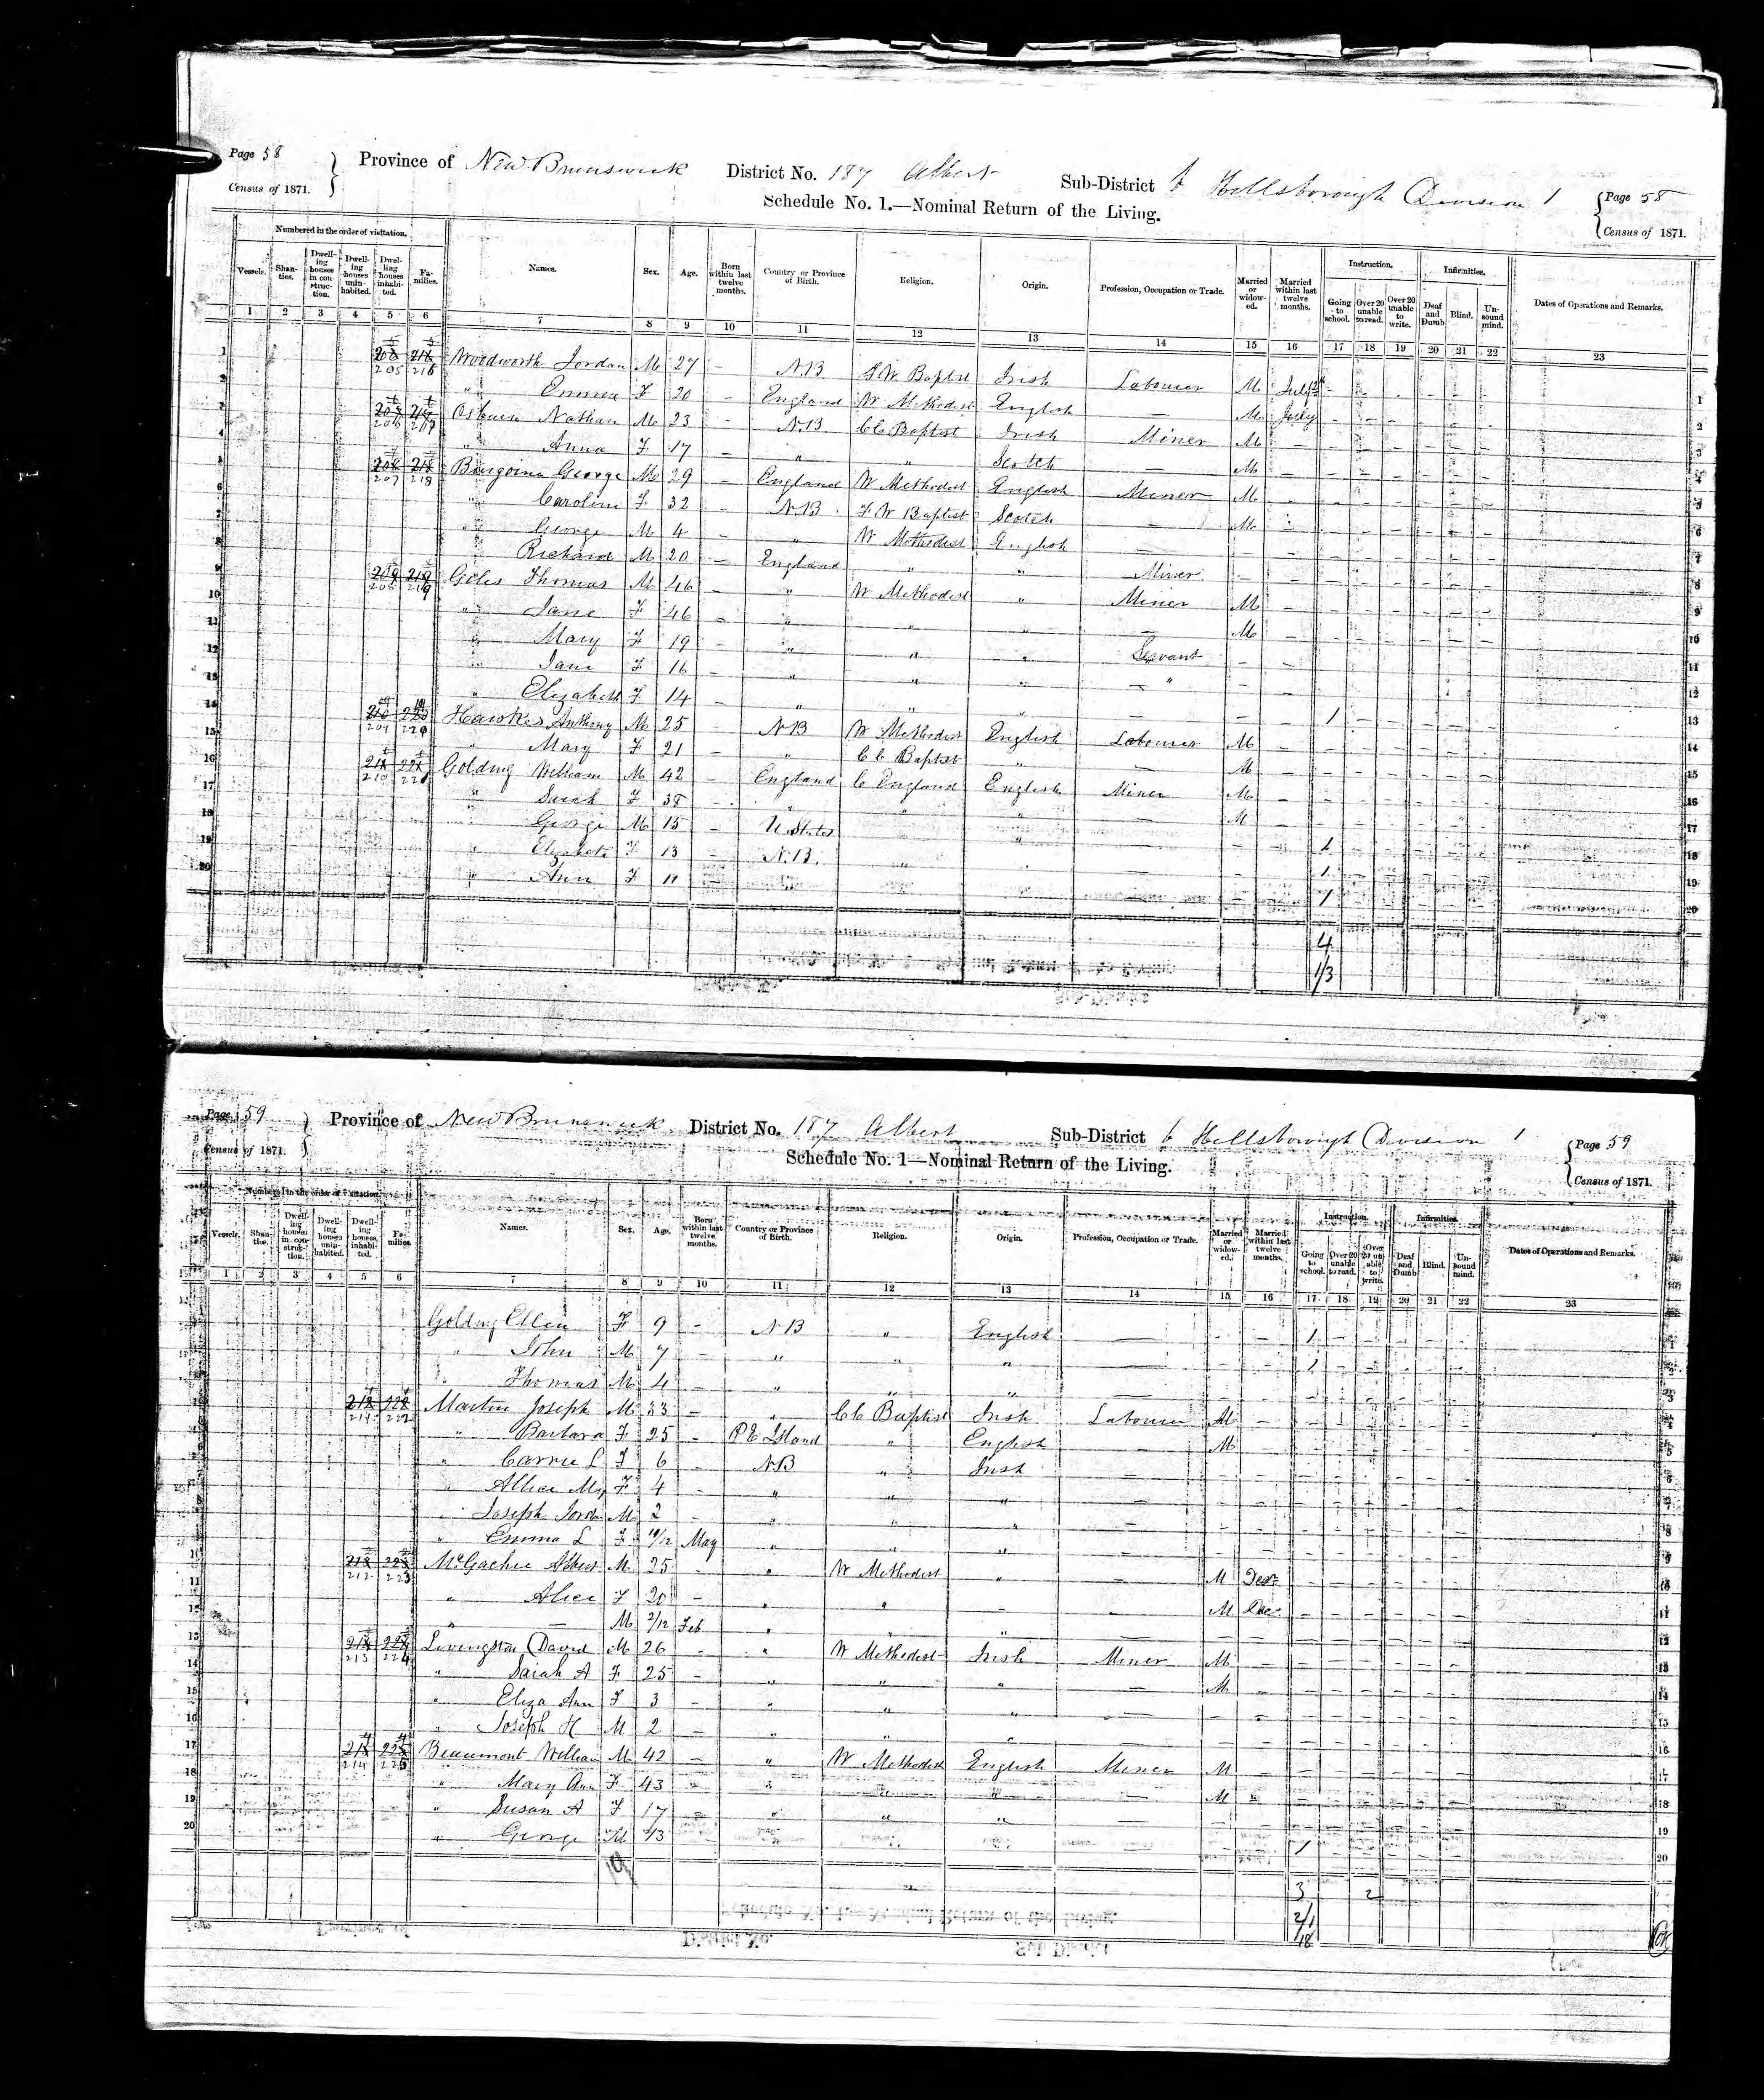 Page 58 Province of New Brunswick District No. 187 Albert Sub-District b Hillsborough Division 1 Page 58
Census of 1871. Schedule No. 1.—Nominal Return of the Living. Census of 1871.
Numbered in the order of visitation. Instruction. Infirmities.
Vessels. Shanties. Dwelling houses in construction. Dwelling houses uninhabited. Dwelling houses inhabited. Families. Names. Sex. Age. Born within last twelve months. Country or Province of Birth. Religion. Origin. Profession, Occupation or Trade. Married or widowed. Married within last twelve months. Going to school. Over 20 unable to read. Over 20 unable to write. Deaf and Dumb Blind. Unsound mind. Dates of Operations and Remarks.
1 2 3 4 5 6 7 8 9 10 11 12 13 14 15 16 17 18 19 20 21 22 23
1 205 216 Woodworth Jordan M 27 — N.B Baptist Irish Labourer M July
2 " Emma F 20 — England W Methodist English — M July
3 206 217 Nathan M 23 — N.B C C Baptist Irish Miner M —
4 " Anna F 17 — " " Scotch M —
5 207 218 George M 29 — England W Methodist English Miner M —
6 " Caroline F 32 — N.B F W Baptist Scotch — M —
7 " George M 4 — " W Methodist English —
8 " Richard M 20 — England " " Miner —
9 208 219 Giles Thomas M 46 — " W Methodist " Miner M —
10 " Jane F 46 — " " " — M —
11 " Mary F 19 — " " " Servant — —
12 " Jane F 16 — " " " " — —
13 " Elizabeth F 14 — " " " — — — 1
14 209 220 Hawkes Anthony M 25 — N B W Methodist English Labourer M —
15 " Mary F 21 — " C C Baptist " — M —
16 210 221 Golding William M 42 — England C England English Miner M —
17 " Sarah F 38 — " " " — M —
18 " George M 15 — U. States " — — — 1
19 " Elizabeth F 13 — N.B. " — — — 1
20 " Ann F 11 — — — — 1
4
1/3
Page 59 Province of New Brunswick District No. 187 Albert Sub-District b Hillsborough Division 1 Page 59
Census of 1871. Schedule No. 1—Nominal Return of the Living. Census of 1871.
Numbered in the order of visitation. Instruction. Infirmities.
Vessels. Shanties. Dwelling houses in construction. Dwelling houses uninhabited. Dwelling houses inhabited. Families. Names. Sex. Age. Born within last twelve months. Country or Province of Birth. Religion. Origin. Profession, Occupation or Trade. Married or widowed. Married within last twelve months. Going to school. Over 20 unable to read. Over 20 unable to write. Deaf and Dumb Blind. Unsound mind. Dates of Operations and Remarks.
1 2 3 4 5 6 7 8 9 10 11 12 13 14 15 16 17 18 19 20 21 22 23
Golding Ellen F 9 — N B " English — — — 1
" John M 7 — " " " — — — 1
" Thomas M 4 — " " " —
211 222 Martin Joseph M 33 — " C C Baptist Irish Labourer M —
" Barbara F 25 — P E Island " English — M —
" Carrie L F 6 — N B " Irish —
" Allice May F 4 — " " " —
" Joseph M 2 — " " " —
" Emma L F 10/12 May " " " —
212 223 Albert M 25 — " W Methodist " — M Dec
" Alice F 20 — " " — — M Dec
" — M 2/12 Feb " " —
213 224 Livingston David M 26 — " W Methodist Irish Miner M —
" Sarah A F 25 — " " " — M —
" Eliza Ann F 3 — " " " —
" Joseph H M 2 — " " " —
214 225 Beaumont William M 42 — " W Methodist English Miner M —
" Mary Ann F 43 " " " " — M
" Susan A F 17 — " " " —
" George M 13 — — 1
3 2
2/1
18